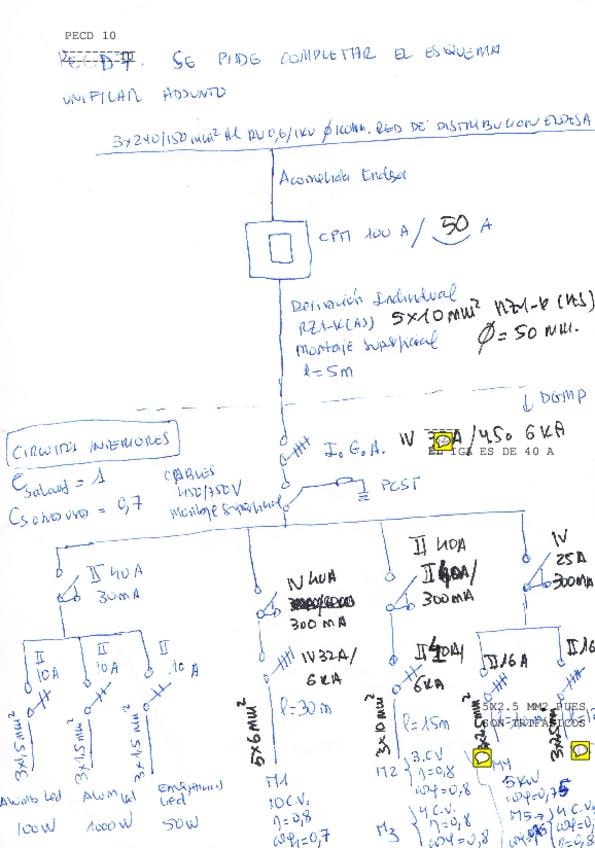 PECD 10
SE PIDE COMPLETAR EL ESQUEMA
UNIFILAR ADJUNTO
3x240/150 mm² Al RV 0,6/1KV RED DE DISTRIBUCION ENDESA
Acometida Endesa
CPM 100 A / 50 A
Derivación Individual
RZ1-K(AS) 5x10 mm² RZ1-K(AS)
Montaje Superficial Ø = 50 mm.
l = 5m
DGMP
CIRCUITOS INTERIORES
I.G.A. IV A / 450 6 KA
EL IGA ES DE 40 A
= 1
CABLES
450/750V
Montaje Superficial
= 0,7
PCST
II 40A
30mA
IV 40A
300 mA
II 40A
300mA
IV
25A
300mA
II
10A
II
10A
II
10 A
IV 32A/
6KA
II 40A/
6KA
II 16A
II 16
3x1,5 mm²
3x1,5 mm²
3x1,5 mm²
5x6 mm²
l = 30m
3x10 mm²
l = 15m
5X2.5 MM2 PUES
SON TRIFASICOS
Alumb Led
100W
Alum Led
1000W
Emergencias
Led
50W
M1
10 C.V.
η = 0,8
cosφ = 0,7
M2
3 C.V
η = 0,8
cosφ = 0,8
M3
4 C.V.
η = 0,8
cosφ = 0,8
M4
5KW
cosφ = 0,75
M5
4 C.V.
η = 0,8